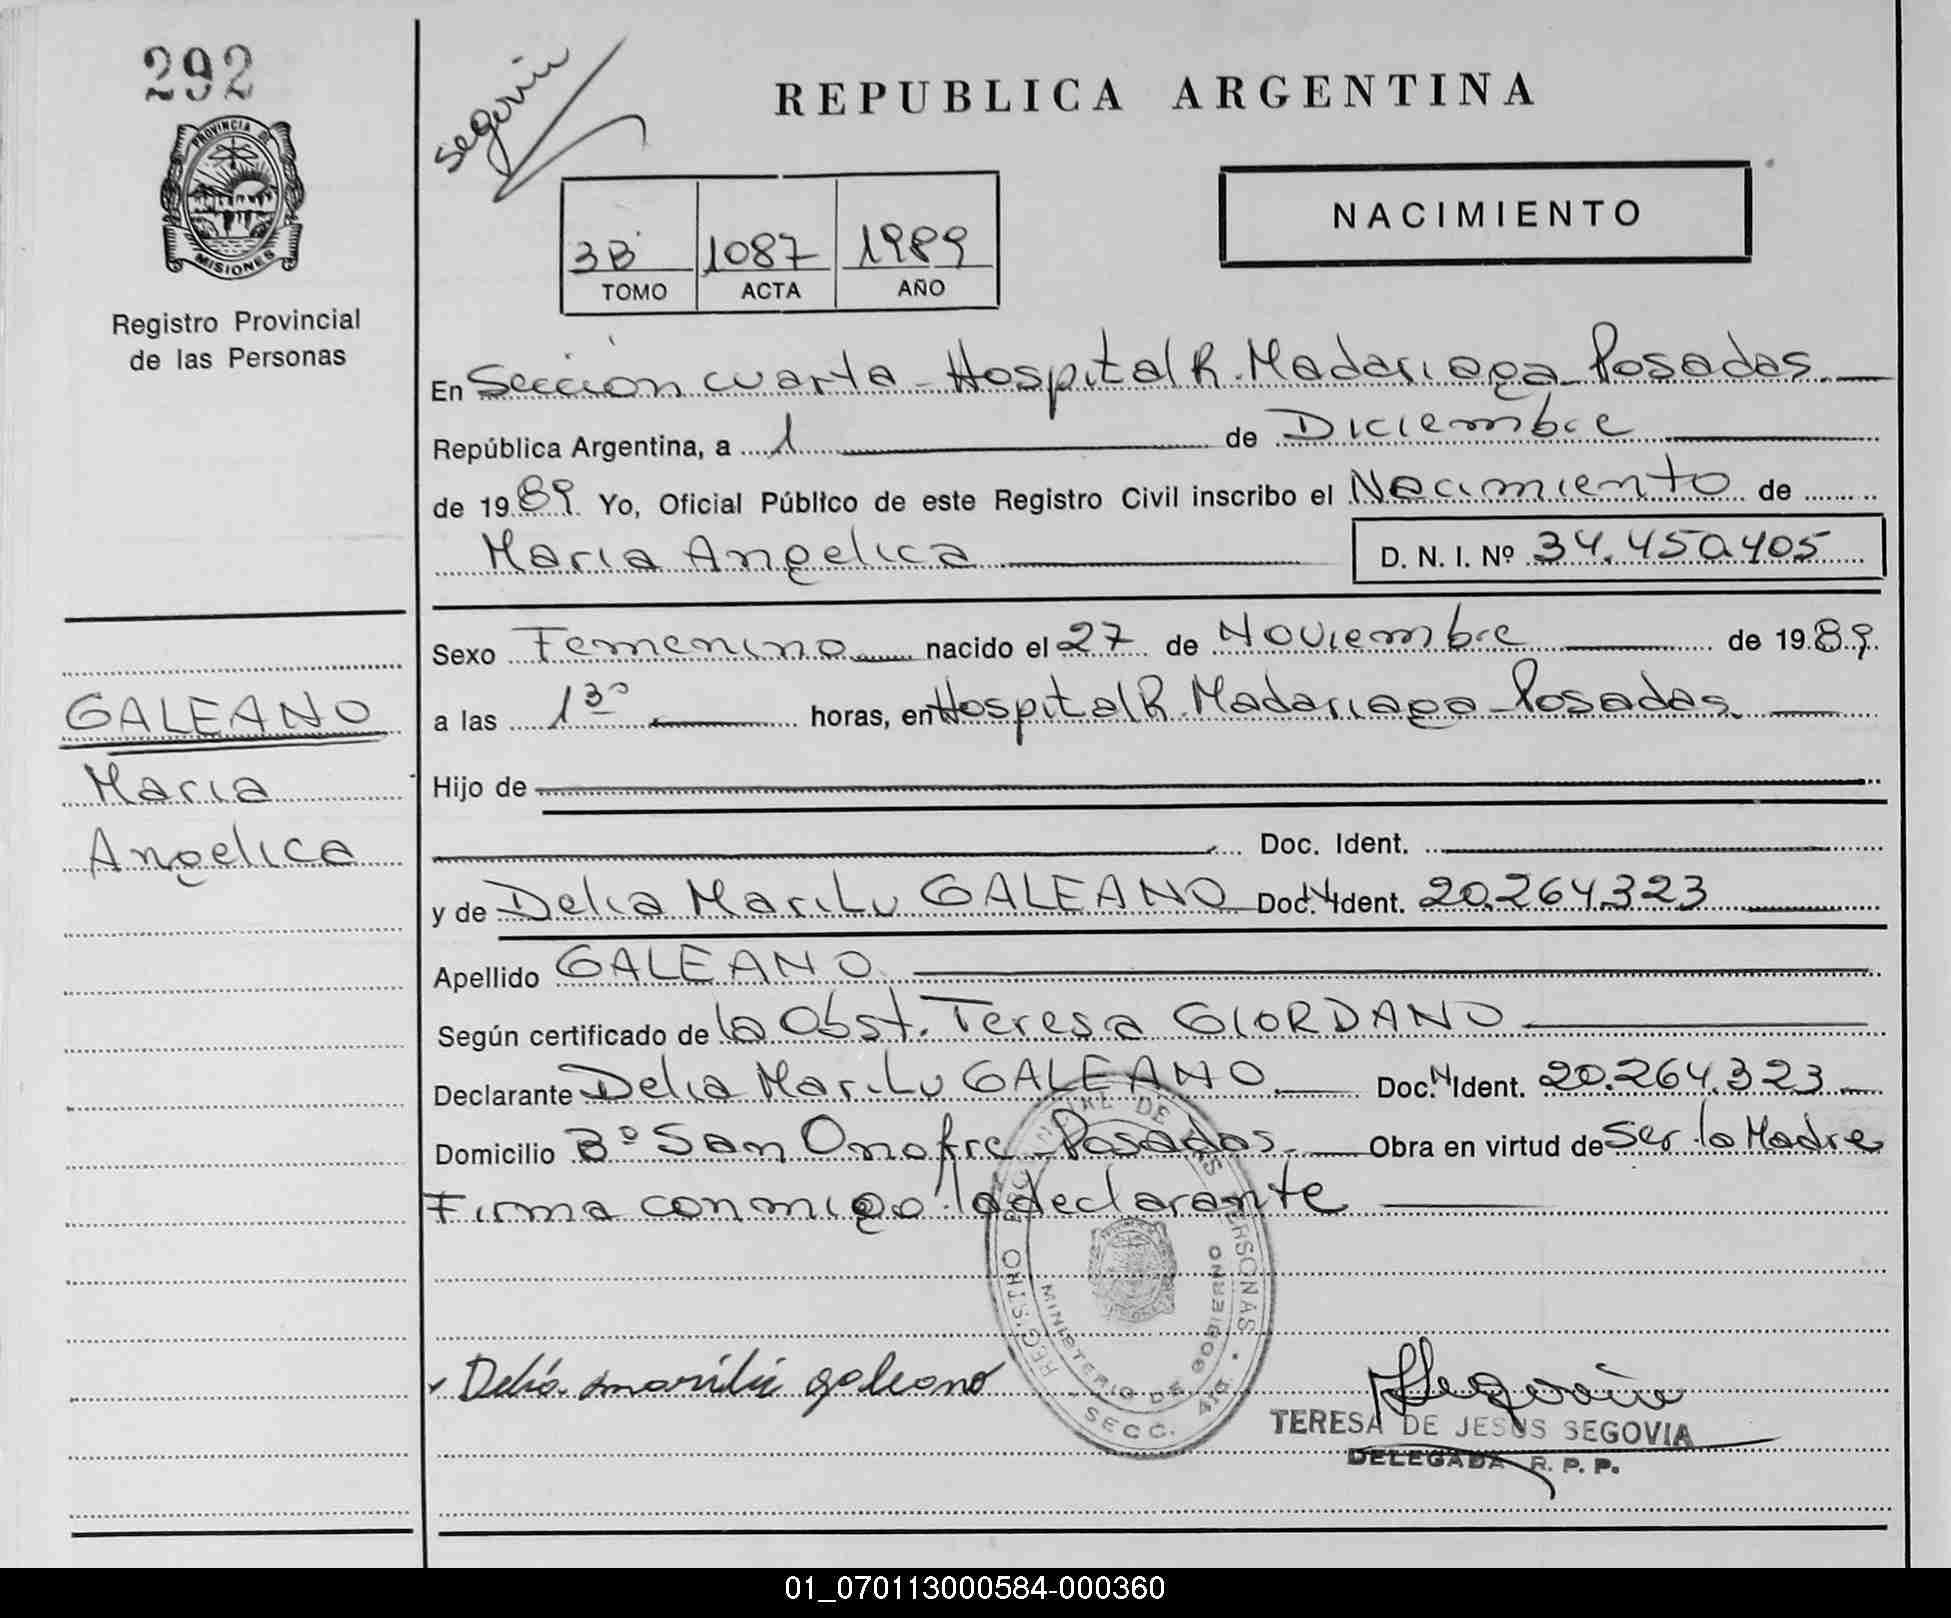 292
PROVINCIA DE
MISIONES
Registro Provincial
de las Personas
GALEANO
Maria
Angelica
Segovia
REPUBLICA ARGENTINA
3B 1087 1989
TOMO ACTA AÑO
NACIMIENTO
En Sección cuarta - Hospital R. Madariaga - Posadas.
República Argentina, a 1 de Diciembre
de 1989 Yo, Oficial Público de este Registro Civil inscribo el Nacimiento de
Maria Angelica D. N. I. Nº 34.450.405
Sexo Femenino nacido el 27 de Noviembre de 1989
a las 13º horas, en Hospital R. Madariaga - Posadas.
Hijo de
Doc. Ident.
y de Delia MariLu GALEANO Doc. N. Ident. 20.264.323
Apellido GALEANO
Según certificado de la Obst. Teresa GIORDANO
Declarante Delia MariLu GALEANO Doc. N Ident. 20.264.323
Domicilio Bº San Onofre - Posadas. Obra en virtud de Ser la Madre
Firma conmigo la declarante
REGISTRO PROVINCIAL DE LAS PERSONAS
MINISTERIO DE GOBIERNO
SECC. 4ta
Delia marilú galeano
Segovia
TERESA DE JESUS SEGOVIA
DELEGADA R. P. P.
01_070113000584-000360